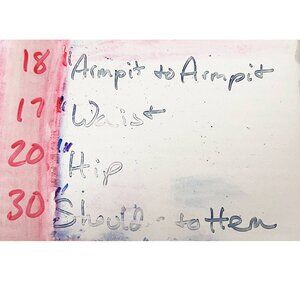 18" Armpit to Armpit
17" Waist
20" Hip
30" Should - to Hem